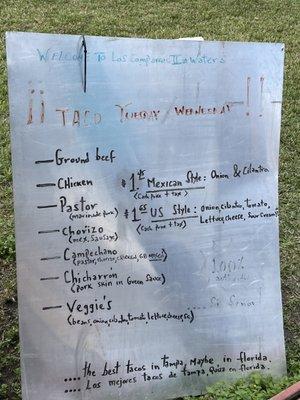 Welcome To Los Campeones II on Waters
¡¡ Taco Tuesday / Wednesday !!
— Ground beef
— Chicken
$1.75 Mexican Style: Onion & Cilantro
(Cash price + tax)
— Pastor
(marinade pork)
$1.65 US Style: onion, cilantro, Tomato,
Lettuce, cheese, Sour Cream
(Cash price + tax)
— Chorizo
(mex, sausage)
— Campechano
(pastor, chorizo,
— Chicharrón
(Pork skin in Green Sauce)
100%
— Veggie's
(beans, onion, cilantro, tomato, lettuce, cheese, Sc)
.... Si Señor
.... the best tacos in tampa, Maybe in florida.
.... Los mejores tacos de tampa, Quiza en florida.